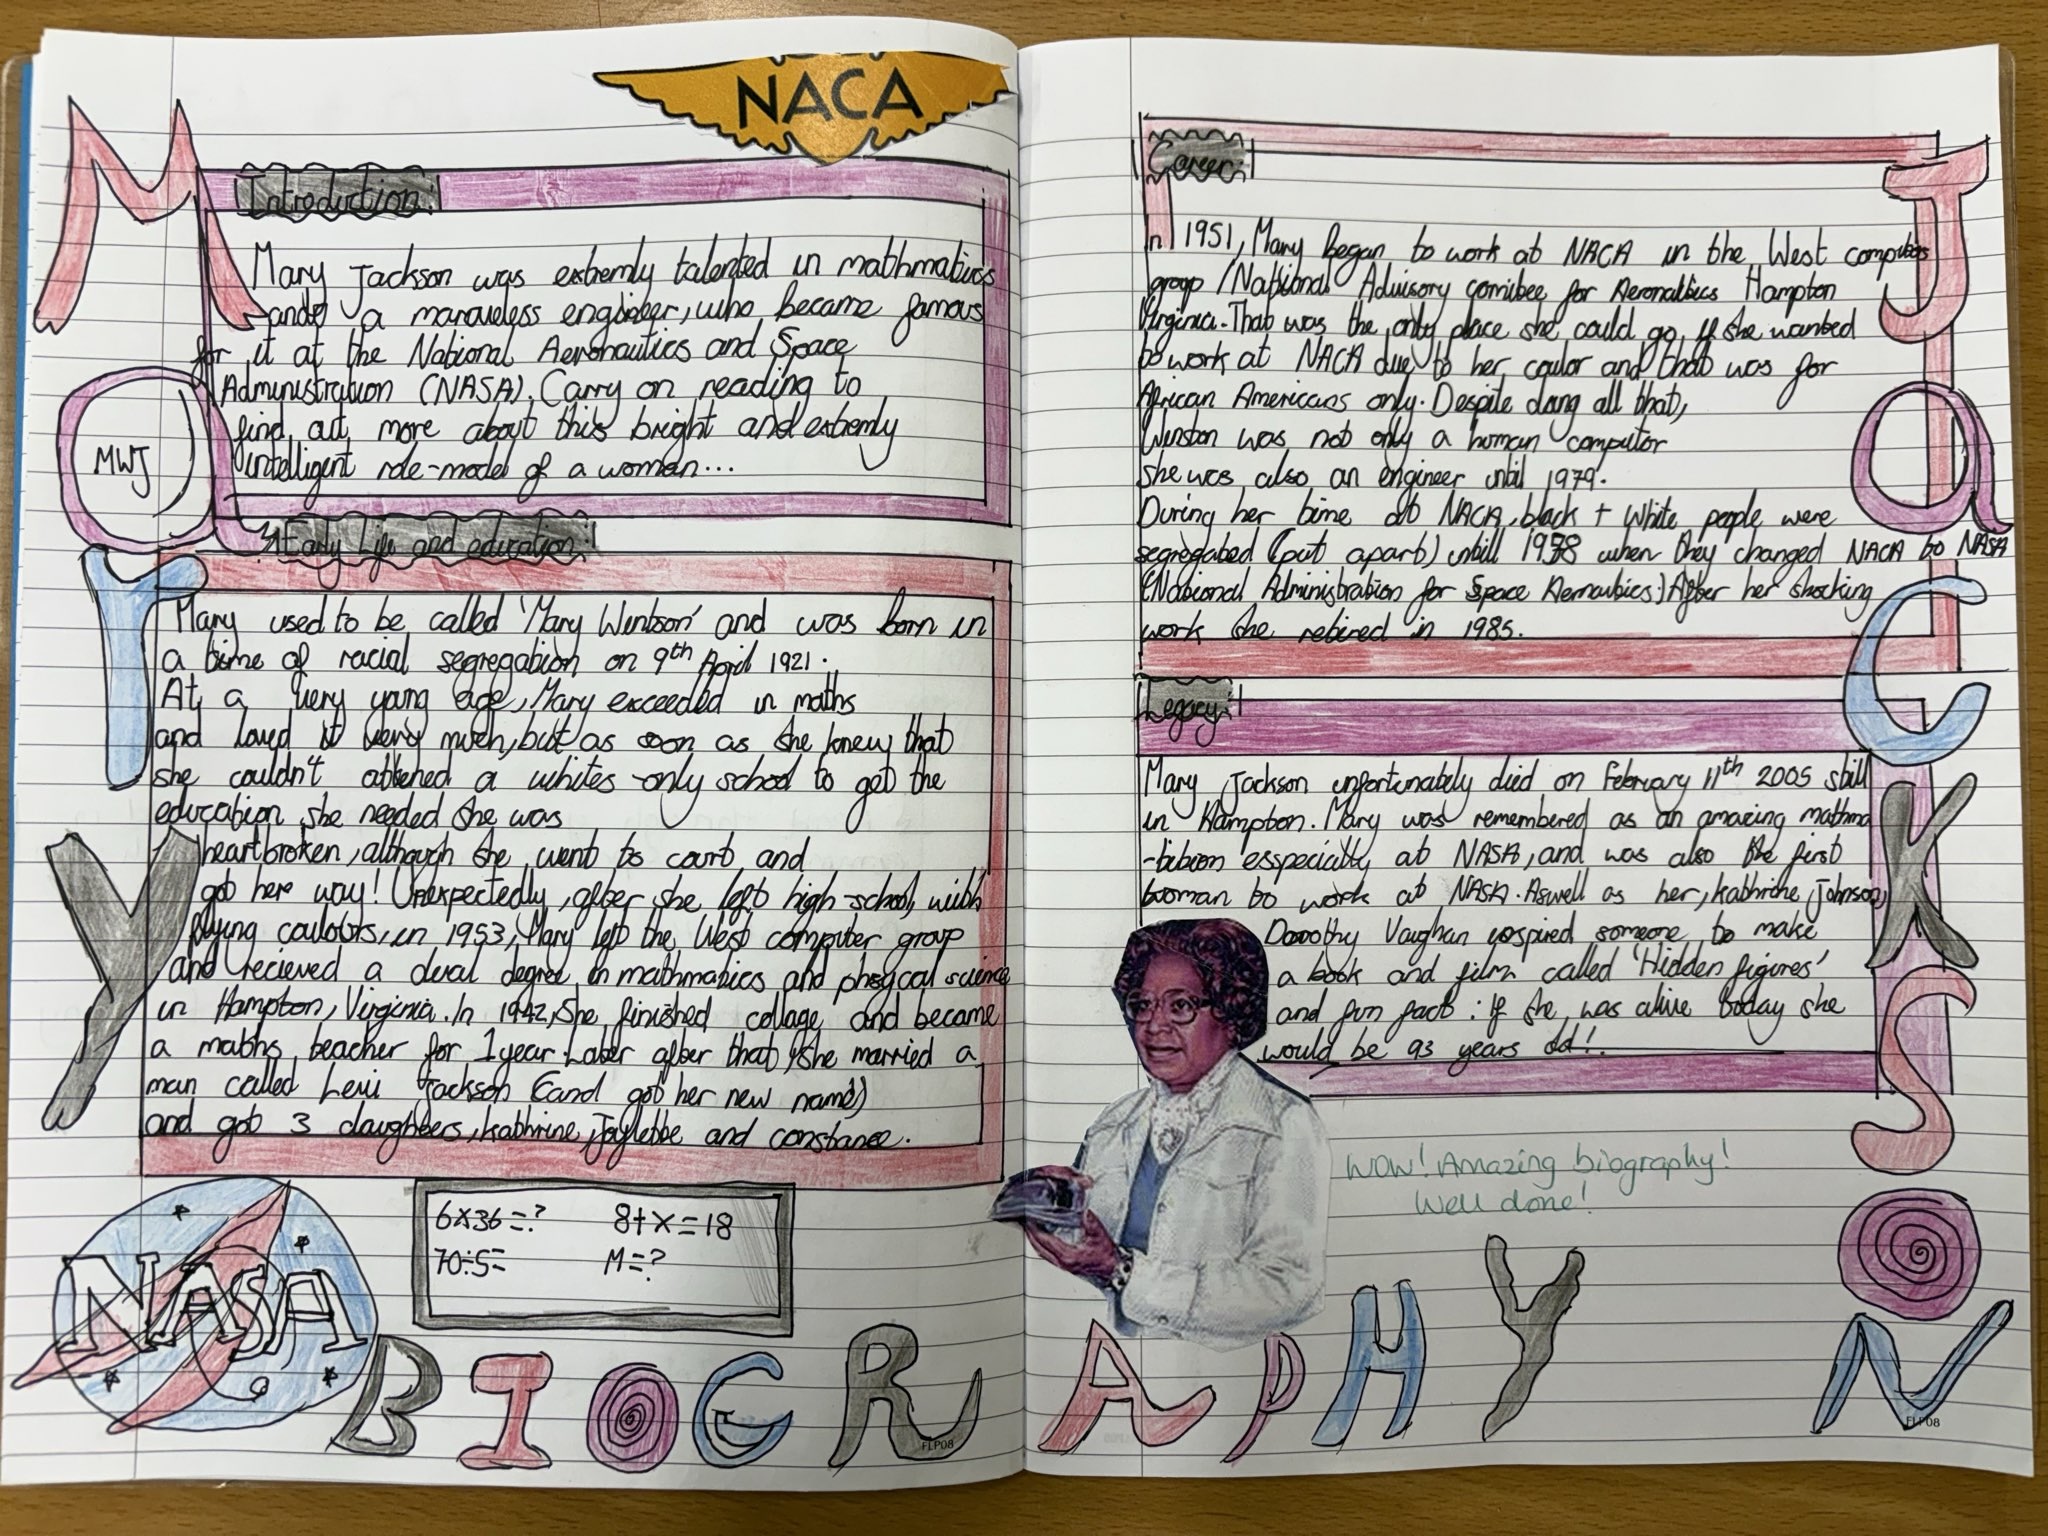 NACA
MARY
MWJ
Introduction:
Mary Jackson was extremly talented in mathmatics
and a marveless engineer, who became famous
for it at the National Aeronautics and Space
Administration (NASA). Carry on reading to
find out more about this bright and extremly
intelligent role-model of a woman...
Early Life and education:
Mary used to be called 'Mary Wintson' and was born in
a time of racial segregation on 9th April 1921.
At a very young age, Mary exceeded in maths
and loved it very much, but as soon as she knew that
she couldn't attened a whites-only school to get the
education she needed she was
heartbroken, although she went to court and
got here way! Unexpectedly, after she left high-school, with
flying coulours, in 1953, Mary left the West computer group
and recieved a dual degree in mathmatics and phsycal science
in Hampton, Virginia. In 1942, She finished collage and became
a maths teacher for 1 year. Later after that, she married a
man called Levi Jackson (and got her new name)
and got 3 daughters, kathrine, Jaylette and constance.
NASA
6x36=? 8+x=18
70÷5= M=?
BIOGRAPHY
FLP08
JACKSON
Career:
In 1951, Mary began to work at NACA in the West computers
group (National Advisory comitee for Aeronaltics Hampton
Virginia. That was the only place she could go, if she wanted
to work at NACA due to her coulor and that was for
African Americans only. Despite doing all that,
Winston was not only a human computor
she was also an engineer until 1979.
During her time at NACA, black + White people were
segregated (put apart) untill 1958 when they changed NACA to NASA
(National Administration for Space Aernautics) After her shocking
work she retired in 1985.
Legacy:
Mary Jackson unfortunately died on February 11th 2005 still
in Hampton. Mary was remembered as an amazing mathma
-tition esspecially at NASA, and was also the first
woman to work at NASA. Aswell as her, kathrine Johnson,
Dorothy Vaughan inspired someone to make
a book and film called 'Hidden figures'
and fun fact: if she was alive today she
would be 93 years old!.
WOW! Amazing biography!
Well done!
FLP08